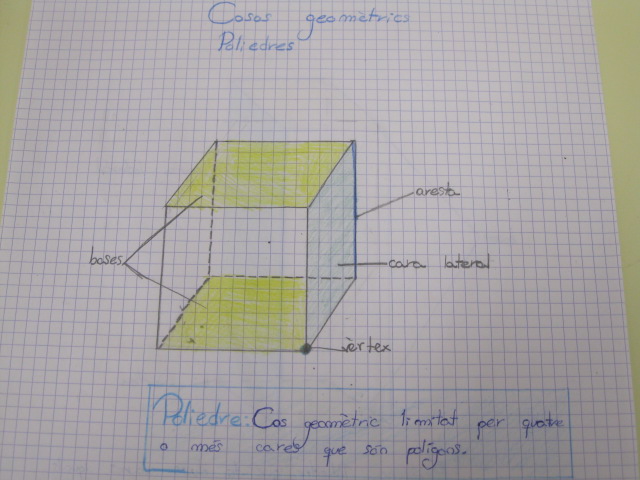 Cosos geomètrics
Poliedres
aresta
bases
cara lateral
vèrtex
Poliedre: Cos geomètric limitat per quatre
o més cares que són polígons.